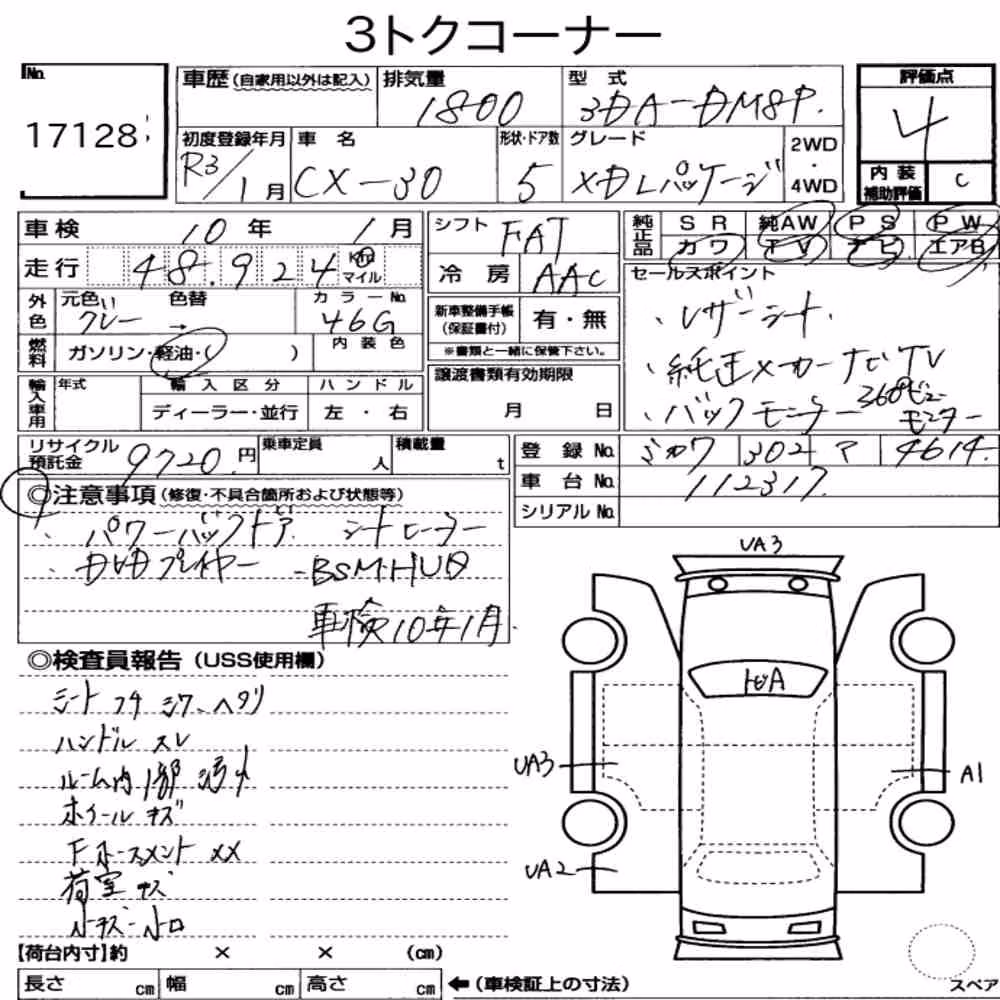 3トクコーナー
No.
17128
車歴(自家用以外は記入) 排気量 1800 型式 3DA-DM8P
評価点 4
内装補助評価 C
初度登録年月 R3/1月 車名 CX-30 形状・ドア数 5 グレード XDLパッケージ 2WD・4WD
車検 10年1月
走行 48,924 Km マイル
外色 元色 グレー 色替 → カラーNo. 46G
燃料 ガソリン・軽油・( ) 内装色
シフト FAT
冷房 AAC
新車整備手帳(保証書付) 有・無
※書類と一緒に保管下さい。
譲渡書類有効期限
月 日
純正品 SR 純AW PS PW
カワ TV ナビ エアB
セールスポイント
、レザーシート
・純正メーカーナビTV
・バックモニター 360°ビューモニター
輸入車用 年式 輸入区分 ハンドル
ディーラー・並行 左・右
リサイクル預託金 9720円 乗車定員 人 積載量 t
登録No. ミカワ 302 マ 4614
車台No. 112317
シリアルNo.
◎注意事項(修復・不具合箇所および状態等)
パワーバックドア シートヒーター
DVDプレイヤー BSM・HUD
車検10年1月
◎検査員報告(USS使用欄)
シート フケ シワ、ヘタリ
ハンドル スレ
ルーム内1部汚れ
ホイールキズ
Fホースメント XX
荷室キズ
小キズ・小凹
UA3
トビA
UA3
A1
UA2
【荷台内寸】約 × × (cm)
長さ cm 幅 cm 高さ cm ←(車検証上の寸法)
スペア